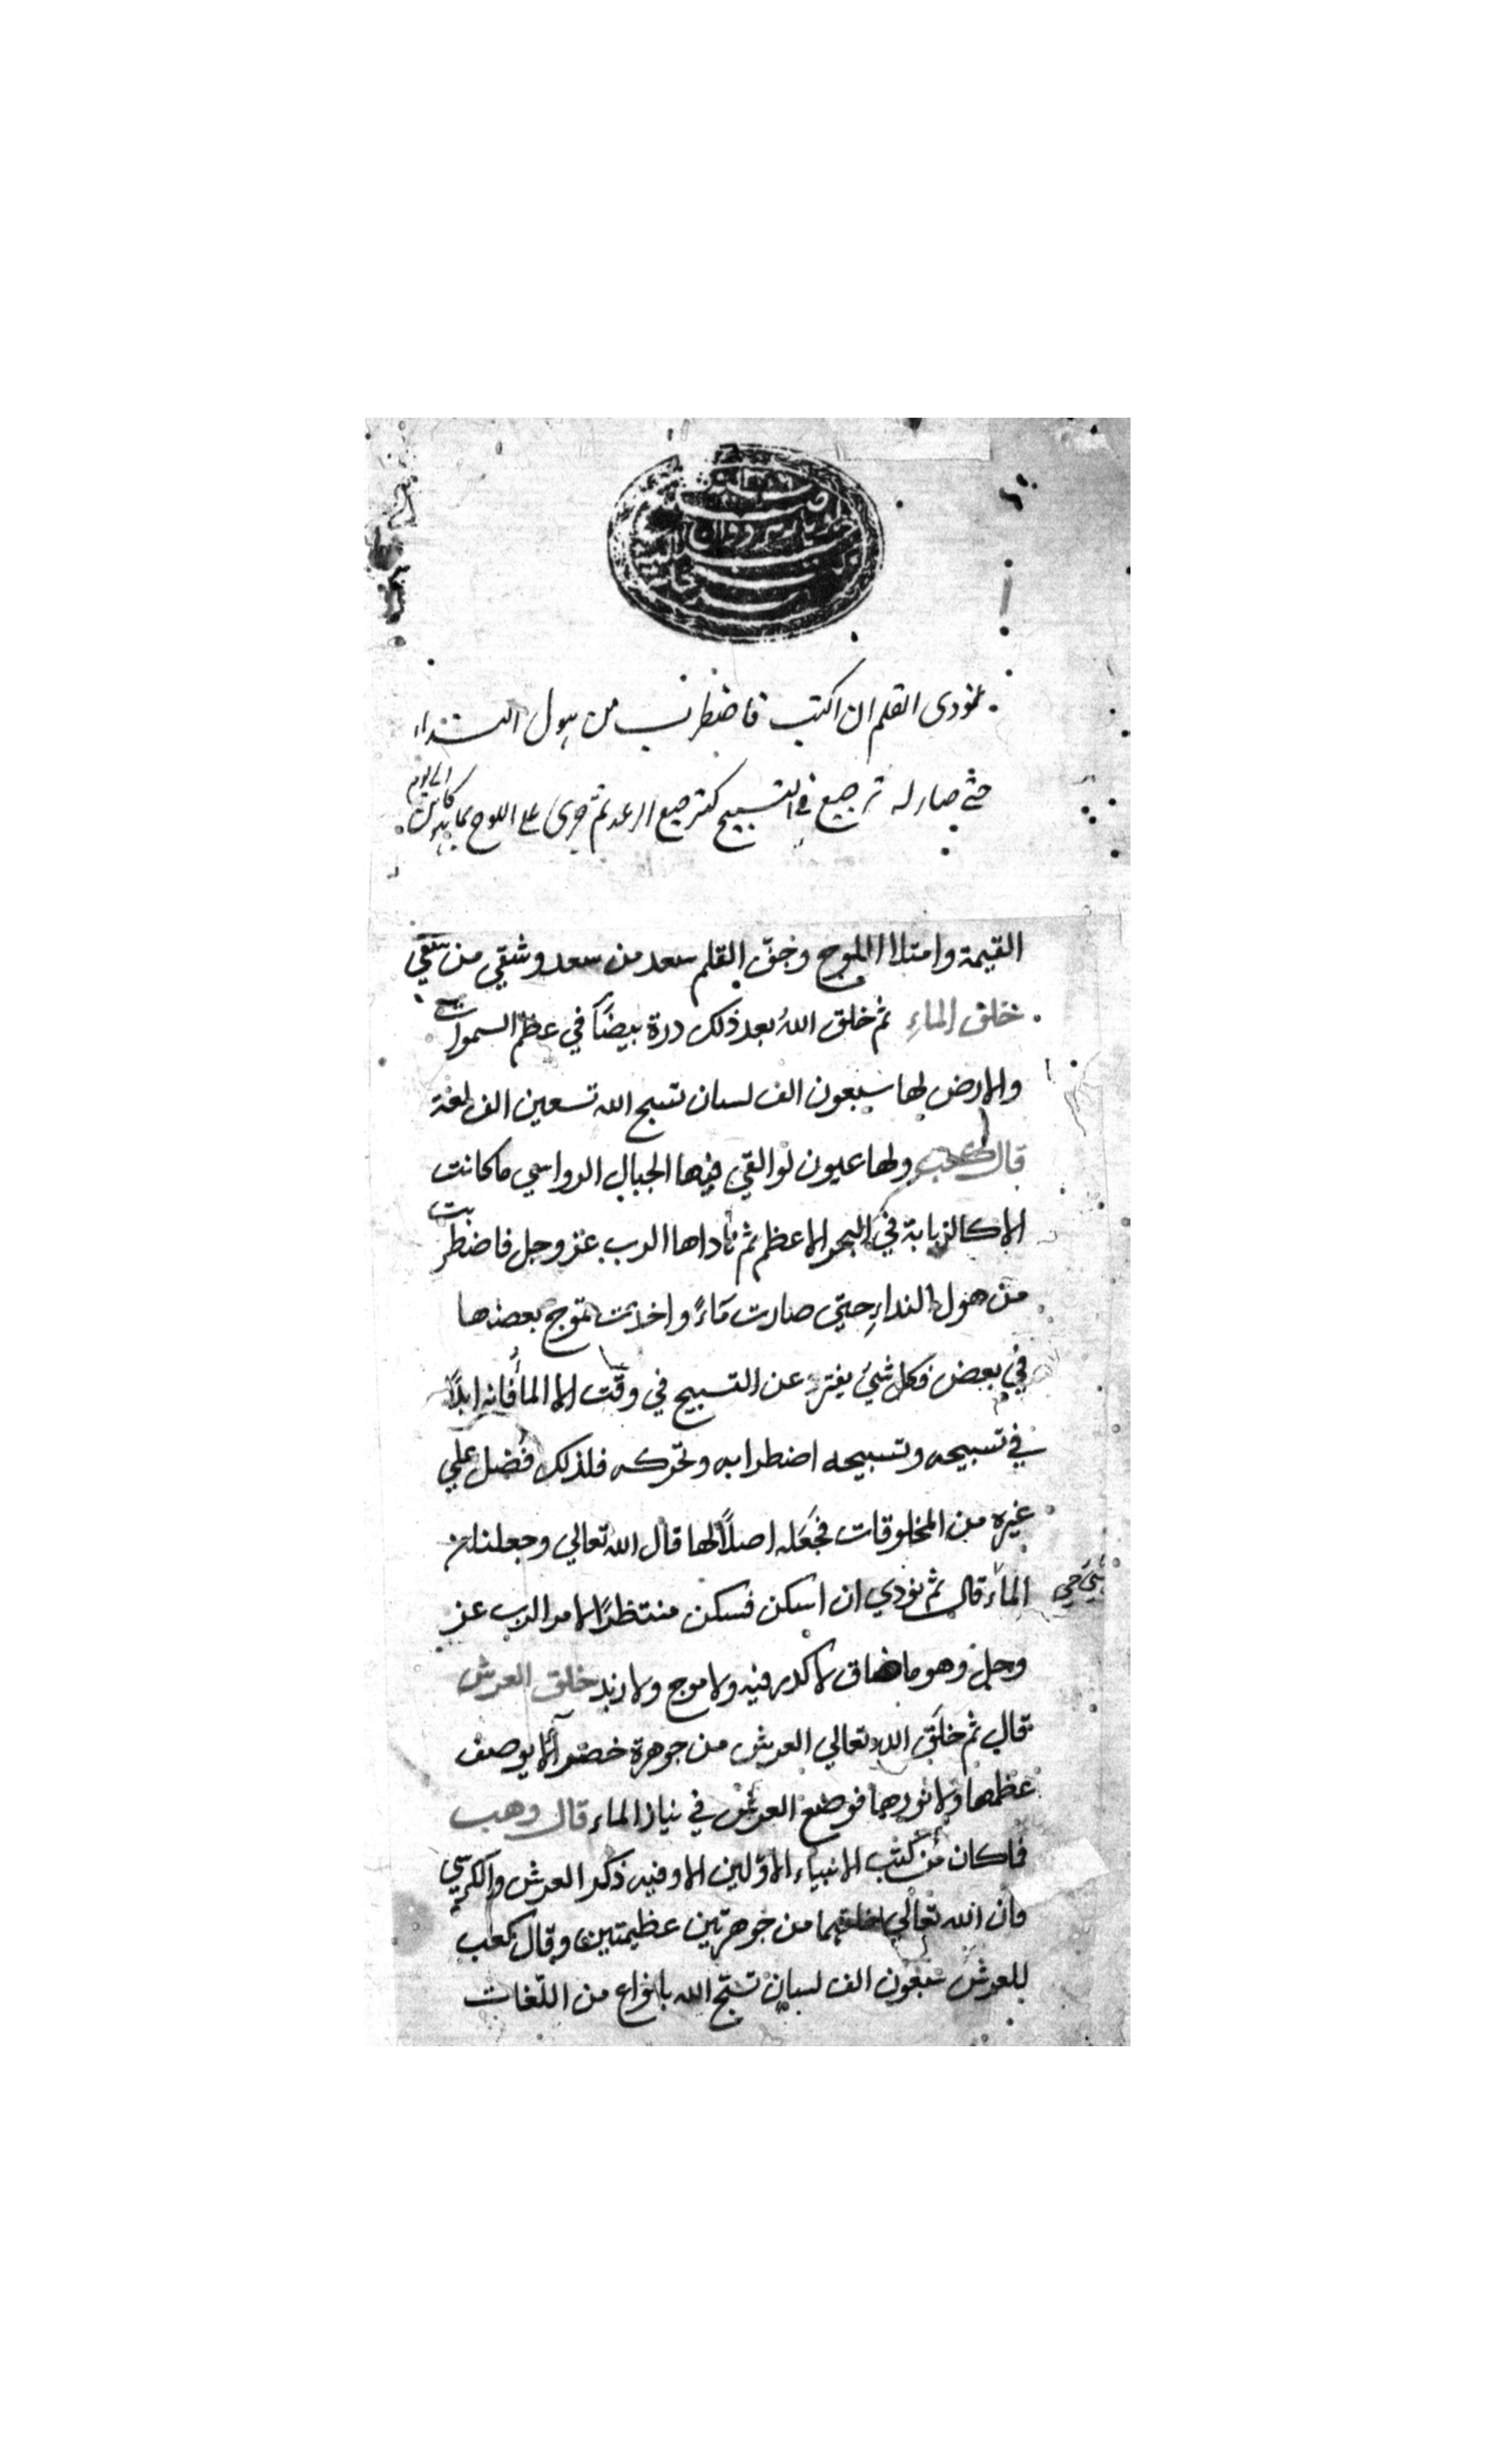 نمودى القلم ان اكتب فاضطرب من هول النداء
حتى صار له ترجيع فى التسبيح كترجيع الرعد ثم جرى على اللوح بما هو كائن الى يوم
القيمة وامتلا اللوح وجف القلم سعد من سعد وشقي من شقي
خلق الماء ثم خلق الله بعد ذلك درة بيضاً في عظم السموات
والارض لها سبعون الف لسان تسبح الله تسعين الف لغة
قال كعب ولها عيون لو القي فيها الجبال الرواسي ما كانت
الا كالذبابة في البحر الاعظم ثم ناداها الرب عز وجل فاضطربت
من هول النداءِ حتى صارت مَاءً واخذت تموج بعضها
في بعض فكل شيئ يفتر عن التسبيح في وقت الا المأ فانه ابداً
في تسبيحه وتسبيحه اضطرابه وتحركه فلذلك فضل علي
غيره من المخلوقات فجَعَله اصلاً لها قال الله تعالي وجعلنا من
الماء قال ثم نودي ان اسكن فسكن منتظراً لامر الرب عز
شيئ حي
وجل وهو ما صاف لا كدر فيه ولا موج ولا زبد خلق العرش
قال ثم خلق الله تعالي العرش من جوهرة خضرآ لا يوصف
عظمها ولا نورها فوضع العرش في تيار الماء قال وهب
فما كان من كتب الانبياء الاوّلين الا وفيه ذكر العرش والكرسي
وان الله تعالي خلقهما من جوهرتين عظيمتين وقال كعب
للعرش سبعون الف لسان تسبّح الله بانواع من اللّغات